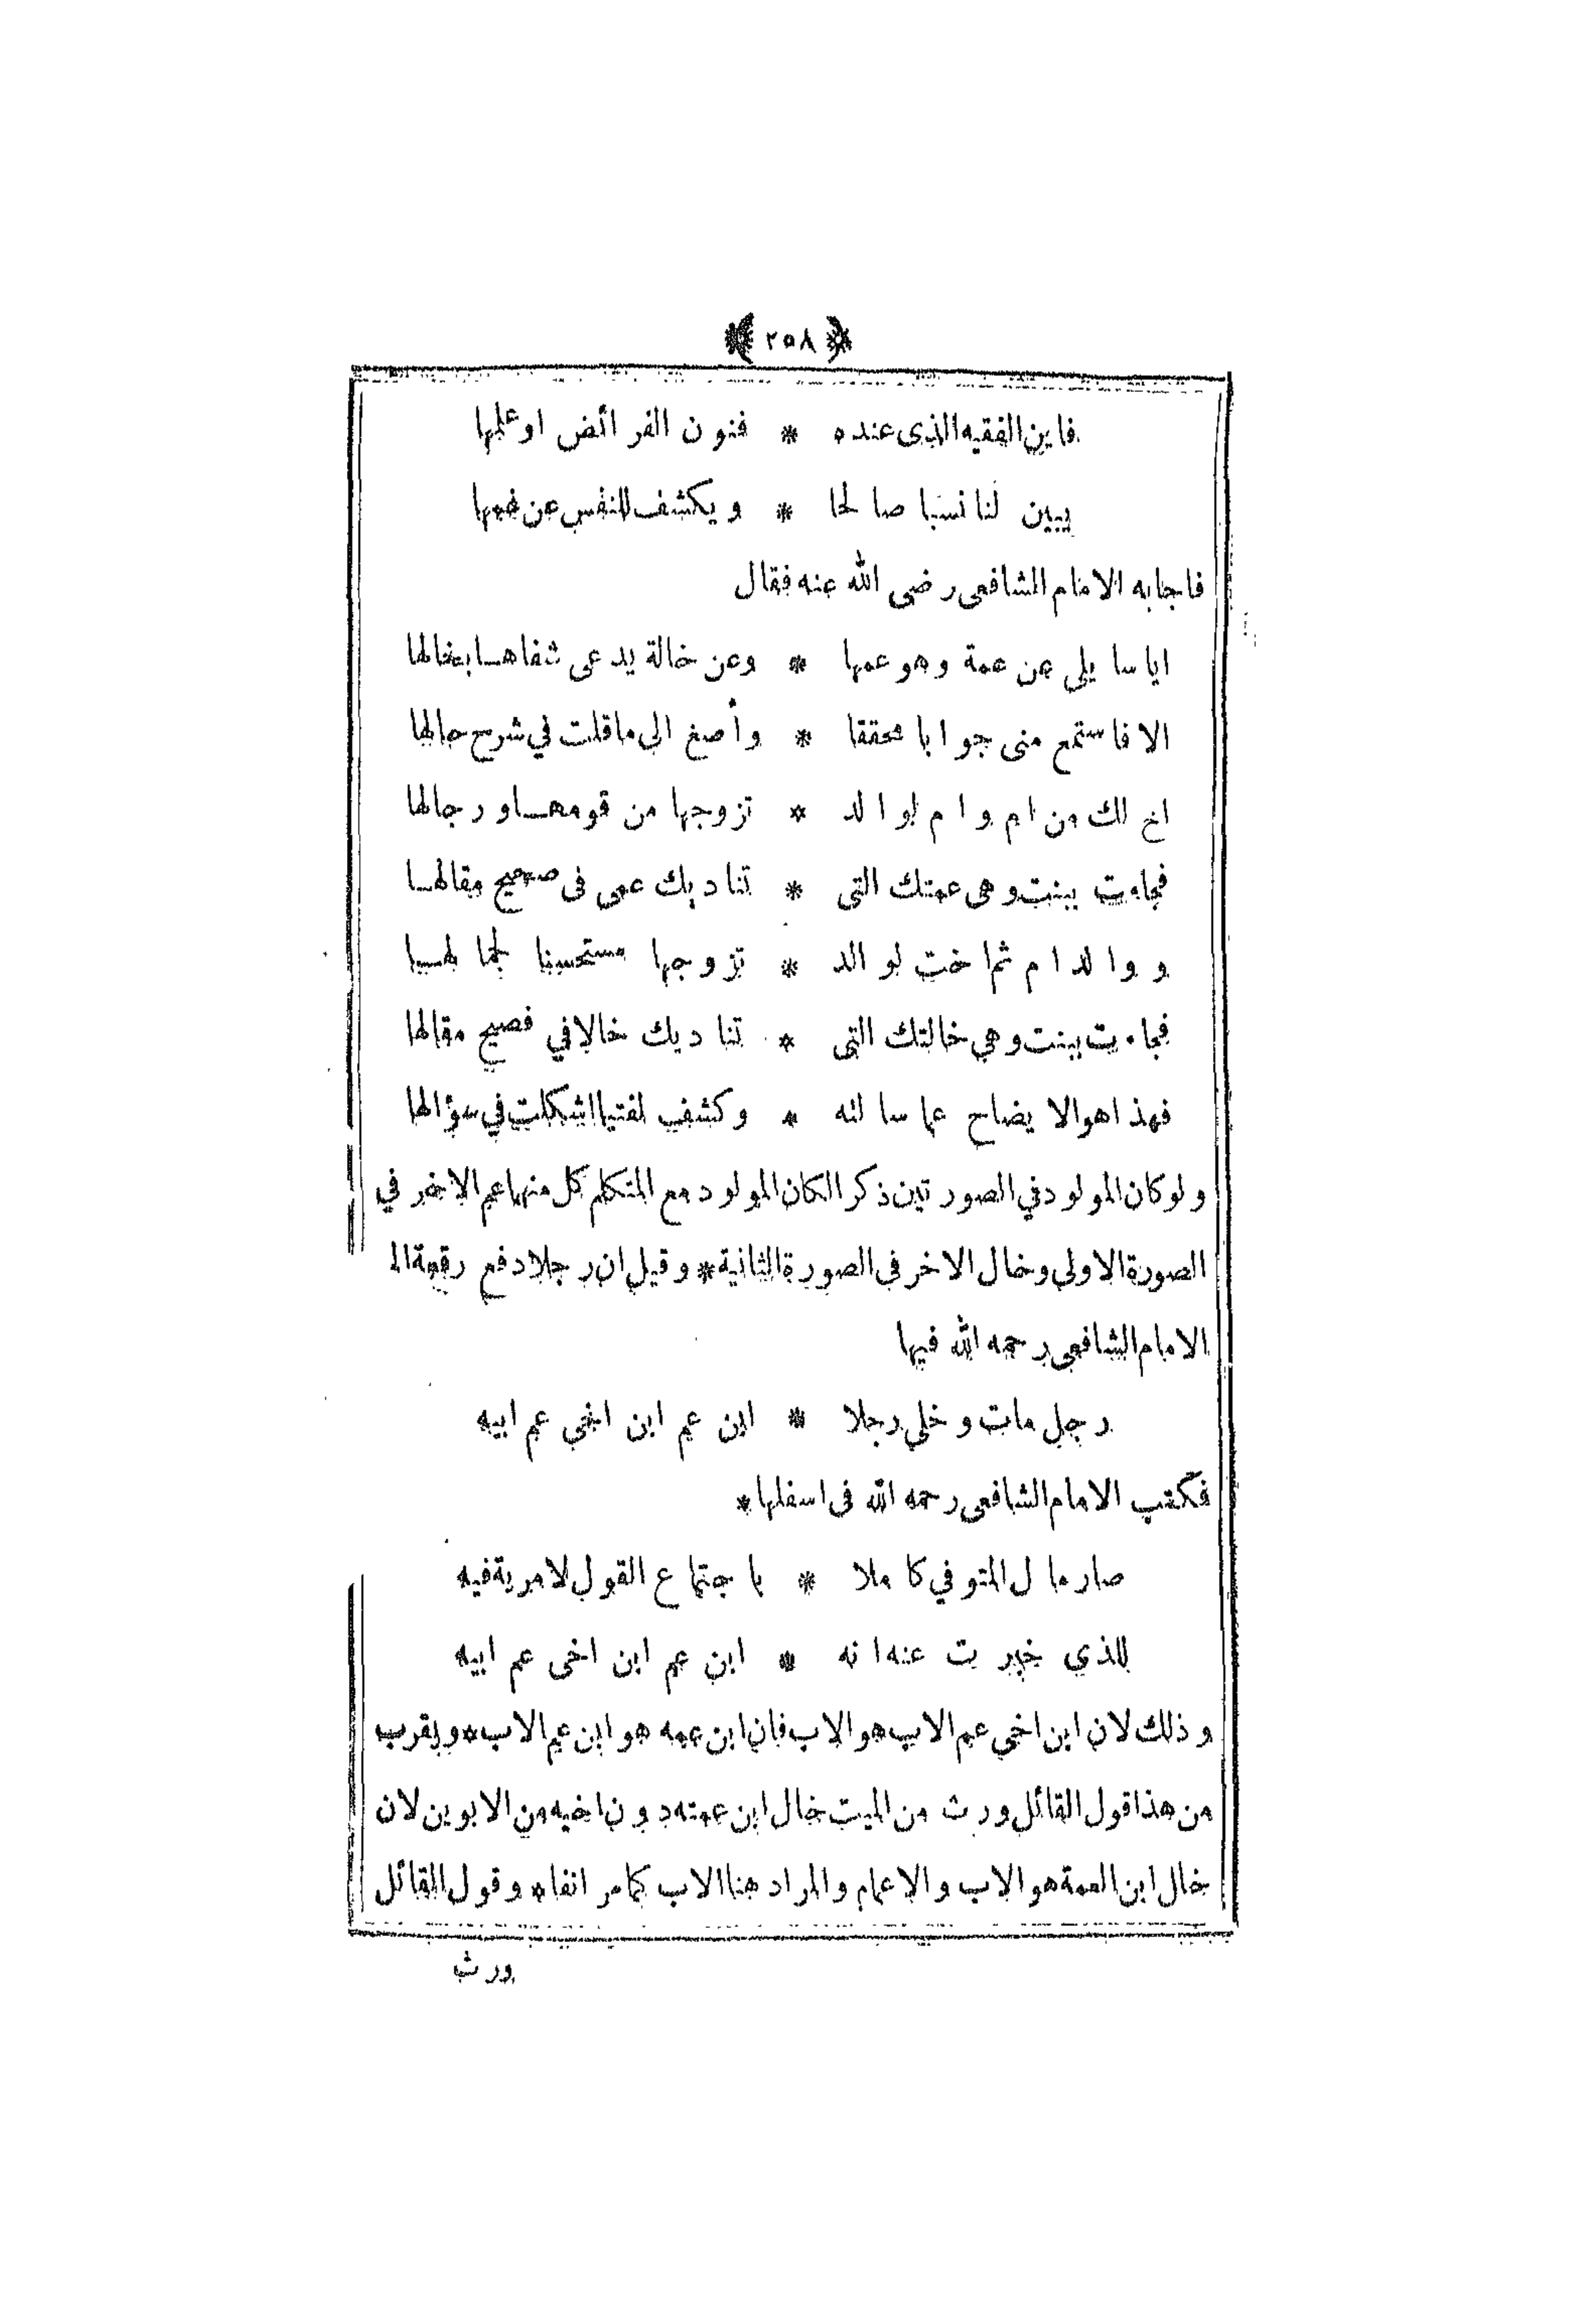 ﴿ ٢٥٨ ﴾
فاين الفقيه الذى عنده * فنون الفرائض او علمها
يبين لنا نسبا صالحا * ويكشف للنفس عن غمها
فاجابه الامام الشافعى رضى الله عنه فقال
ايا سايلى عن عمة وهو عمها * وعن خالة يدعى شفاهـا بخالها
الا فاستمع منى جوابا محققا * وأصغ الى ماقلت في شرح حالها
اخ لك من ام وام لوالد * تزوجها من قومهـا ورجالها
فجاءت ببنت وهى عمتك التى * تناديك عمى فى صحيح مقالهـا
ووالد ام ثم اخت لوالد * تزوجها مستحسنا لجمالهـا
فجاءت ببنت وهي خالتك التى * تناديك خالا في فصيح مقالها
فهذا هو الايضاح عما سالته * وكشف لفتيا اشكلت في سؤالها
ولو كان المولود في الصورتين ذكرا لكان المولود مع المتكلم كل منهما عم الاخر في
الصورة الاولى وخال الاخر فى الصورة الثانية * وقيل ان رجلا دفع رقعة الـ
الامام الشافعى رحمه الله فيها
رجل مات وخلى رجلا * ابن عم ابن اخي عم ابيه
فكتب الامام الشافعى رحمه الله فى اسفلها *
صار مال المتوفي كاملا * باجتماع القول لا مرية فيه
للذي خبرت عنه انه * ابن عم ابن اخى عم ابيه
وذلك لان ابن اخي عم الاب هو الاب فان ابن عمه هو ابن عم الاب * ويقرب
من هذا قول القائل ورث من الميت خال ابن عمته دون اخيه من الابوين لان
خال ابن العمة هو الاب والاعمام والمراد هنا الاب كما مر انفا * وقول القائل
ورث